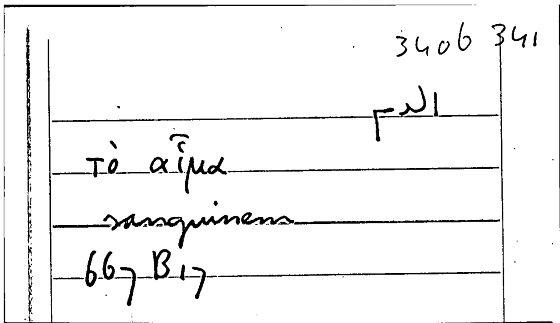 3406 341
الدم
τὸ αἷμα
sanguinem
667 B 17